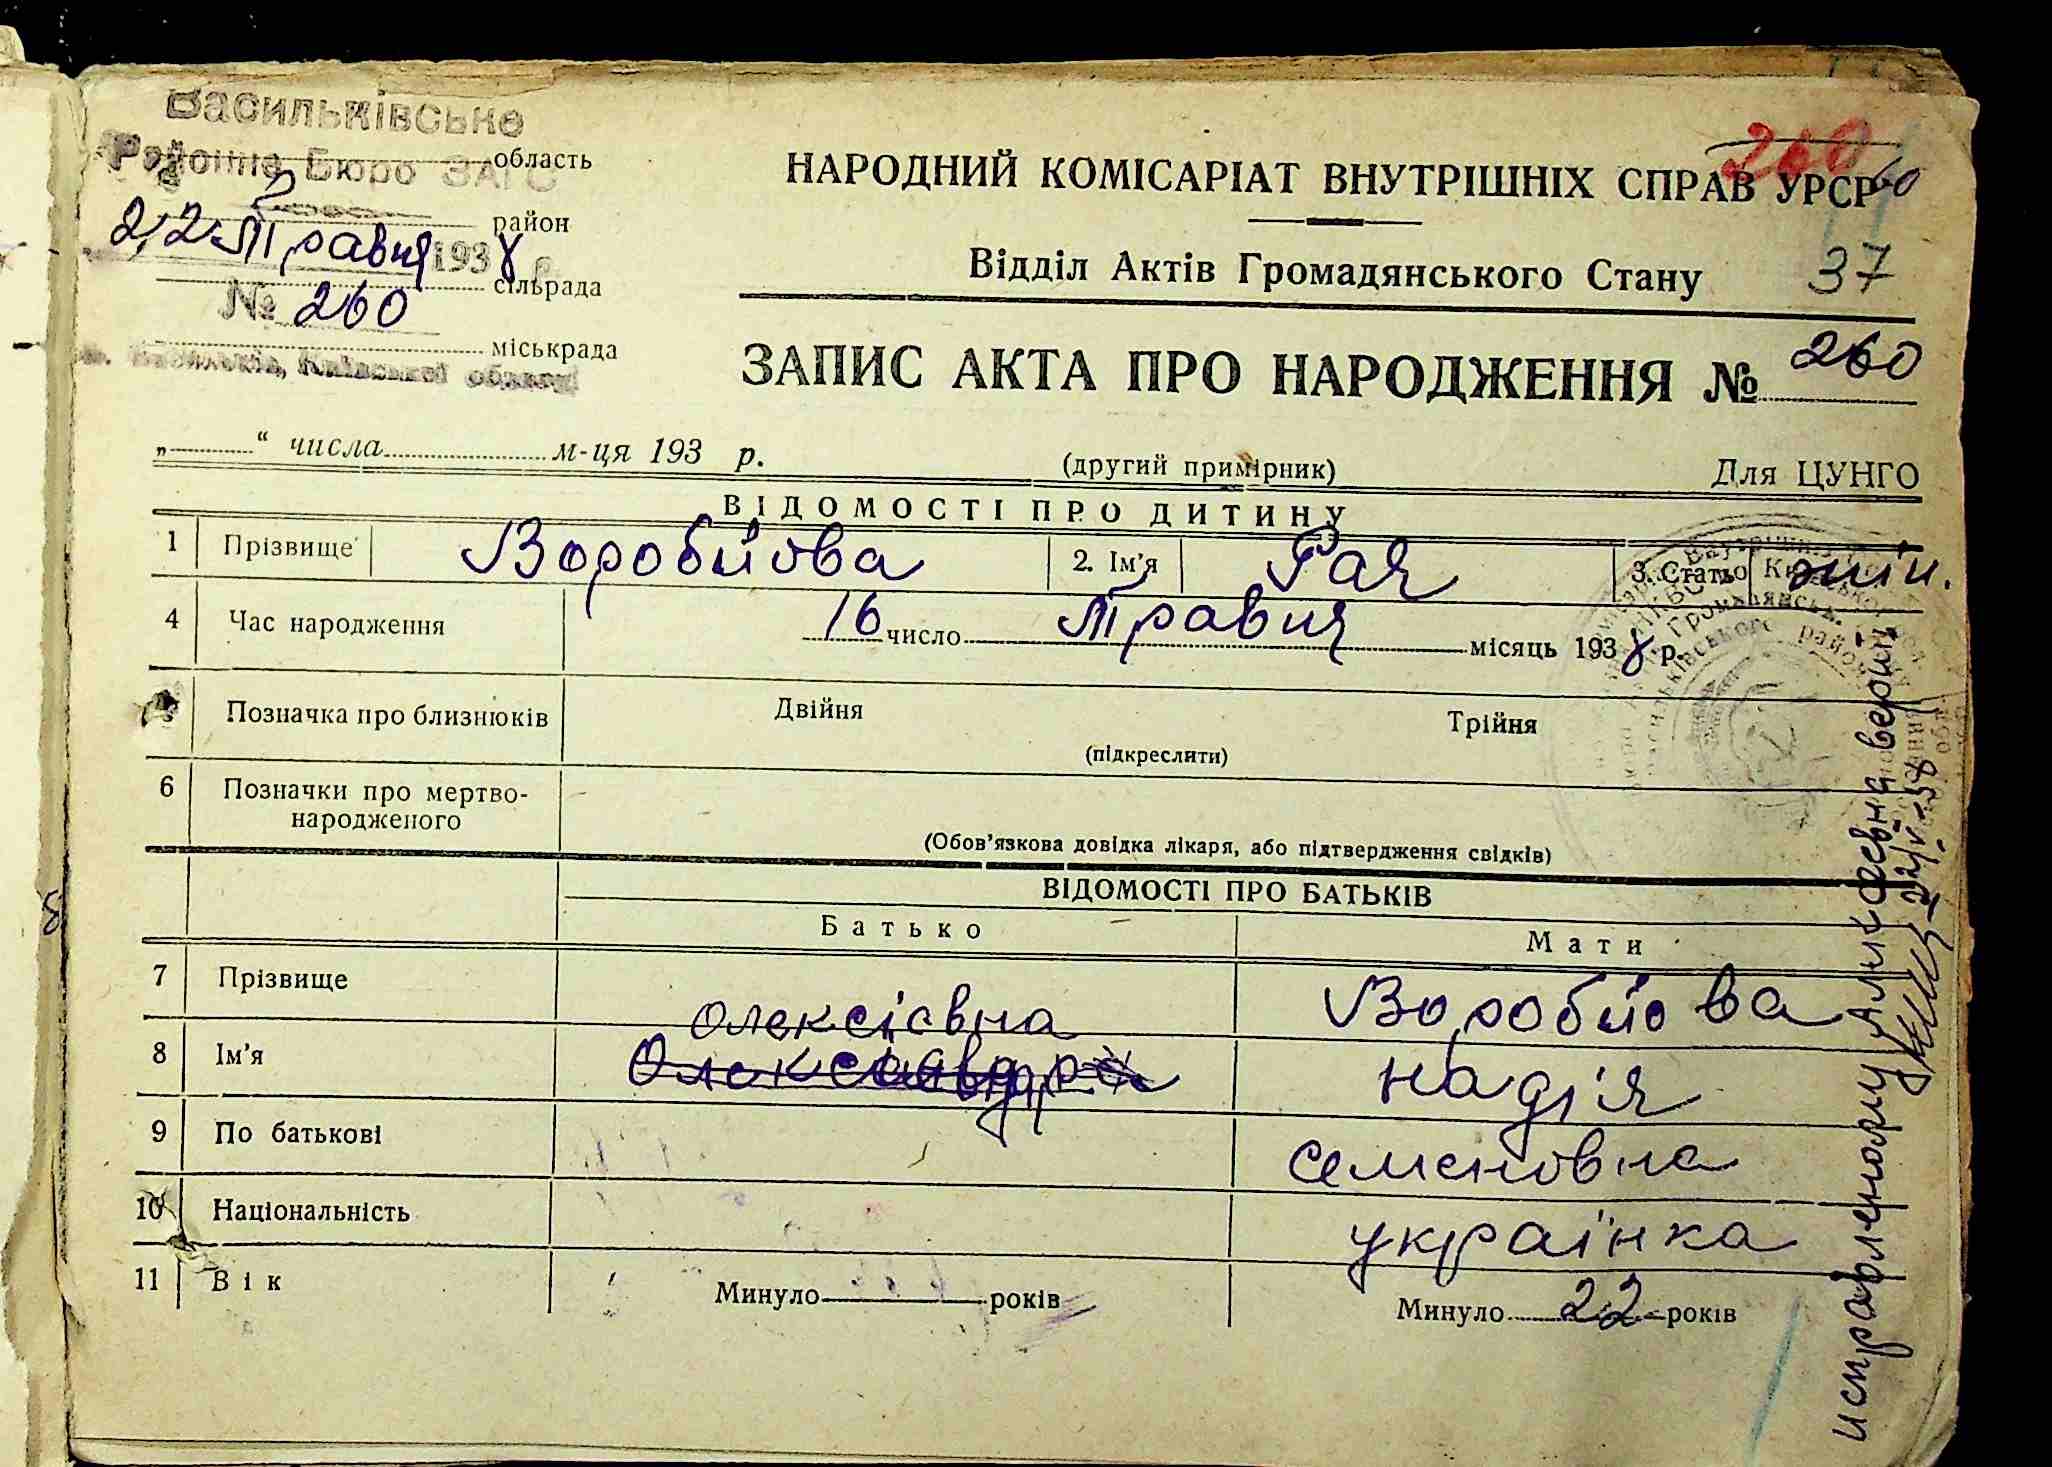 Васильківське
Районне Бюро ЗАГС область
район
22 Травня 1938 р.
сільрада
№ 260
міськрада
м. Васильків, Київської області
260
60
НАРОДНИЙ КОМІСАРІАТ ВНУТРІШНІХ СПРАВ УРСР
Відділ Актів Громадянського Стану 37
ЗАПИС АКТА ПРО НАРОДЖЕННЯ № 260
„ “ числа м-ця 193 р. (другий примірник) Для ЦУНГО
ВІДОМОСТІ ПРО ДИТИНУ
1 Прізвище Воробйова 2. Ім’я Рая 3. Стать жін.
4 Час народження 16 число Травня місяць 1938 р.
Позначка про близнюків Двійня Трійня
(підкреслити)
6 Позначки про мертво-
народженого
(Обов’язкова довідка лікаря, або підтвердження свідків)
ВІДОМОСТІ ПРО БАТЬКІВ
Батько Мати
7 Прізвище Воробйова
Олексієвна
8 Ім’я Надія
9 По батькові Семеновна
10 Національність українка
11 Вік Минуло років Минуло 22 років
исправленому Алексеевна верить